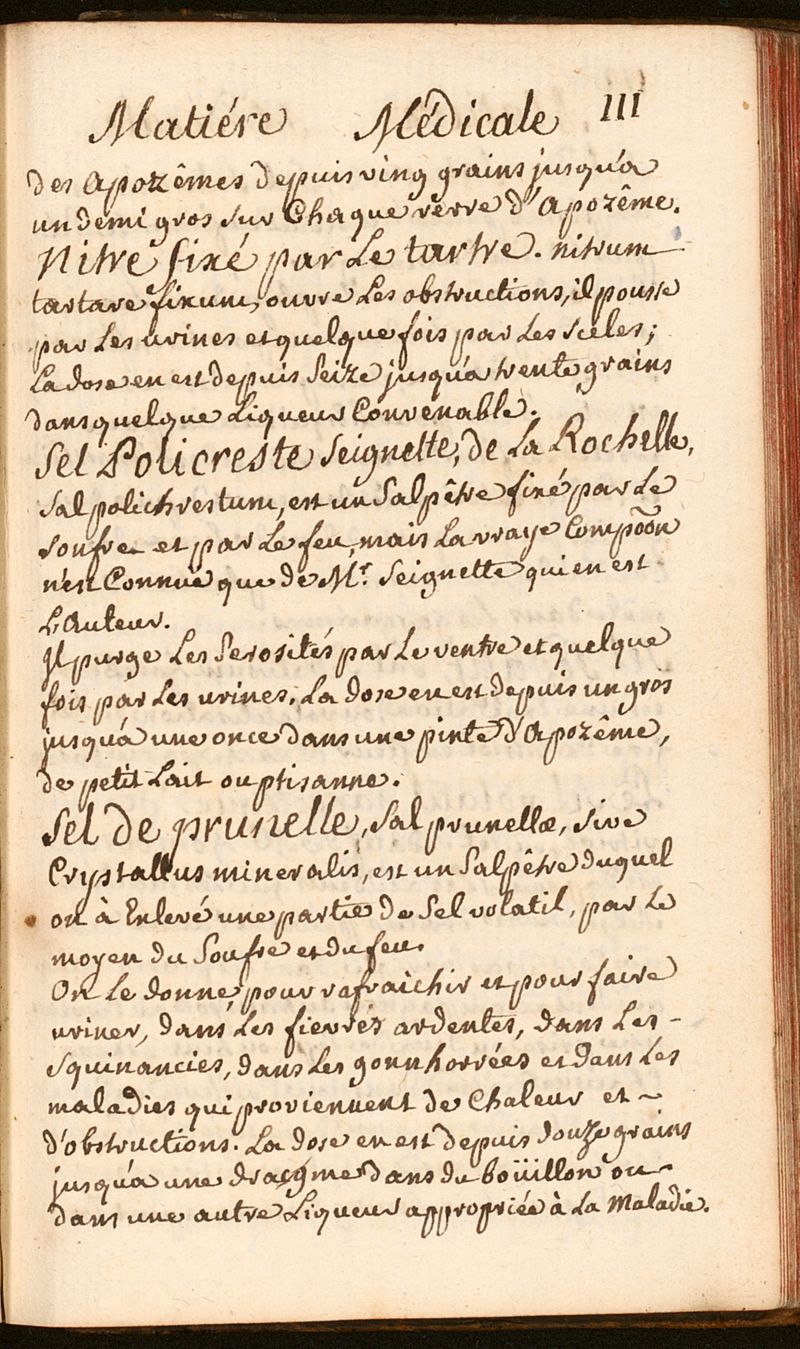 Matiére Médicale 111
des Apozêmes depuis ving grains jusqu'a
un demi gros sur Chaque verre d'Apozême.
Nitre fixé par Le tartre. nitrum
tartare fixum, ouvre Les obstructions, il pousse
par Les urines et quelque fois par Les scelles;
La dose en est depuis Seize jusqu'a trente grains
dans quelque Liqueur Convenable.
Sel Policreste Seignette, de La Rochelle,
Sal polichrestum, est un Salpêtre fixé par Le
soufre et par Le feu, mais La vraye Compõon
n'est Connuë que de Mr. Seignette qui en est
L'Auteur.
Il purge Les Serosités par Le ventre et quelque
fois par Les urines, La dose en est depuis un gros
jusqu'a une once dans une pinte d'Apozême,
de petit Lait ou ptisanne.
Sel de prunelle, Sal prunellæ, sive
Crystallus mineralis, est un Salpêtre duquel
on à Enlevé une partie de Sel volatil, par Le
moyen du Soufre et du feu.
On Le donne pour rafraichir et pour faire
uriner, dans Les fievres ardentes, dans Les -
squinancies, dans Les gonnhorrées et dans Les
maladies qui proviennent de Chaleur et ~
d'obstructions. La dose en est depuis douze grains
jusqu'a une dracgme dans du boüillon ou ~
dans une autre Liqueur appropriée à La Maladie.